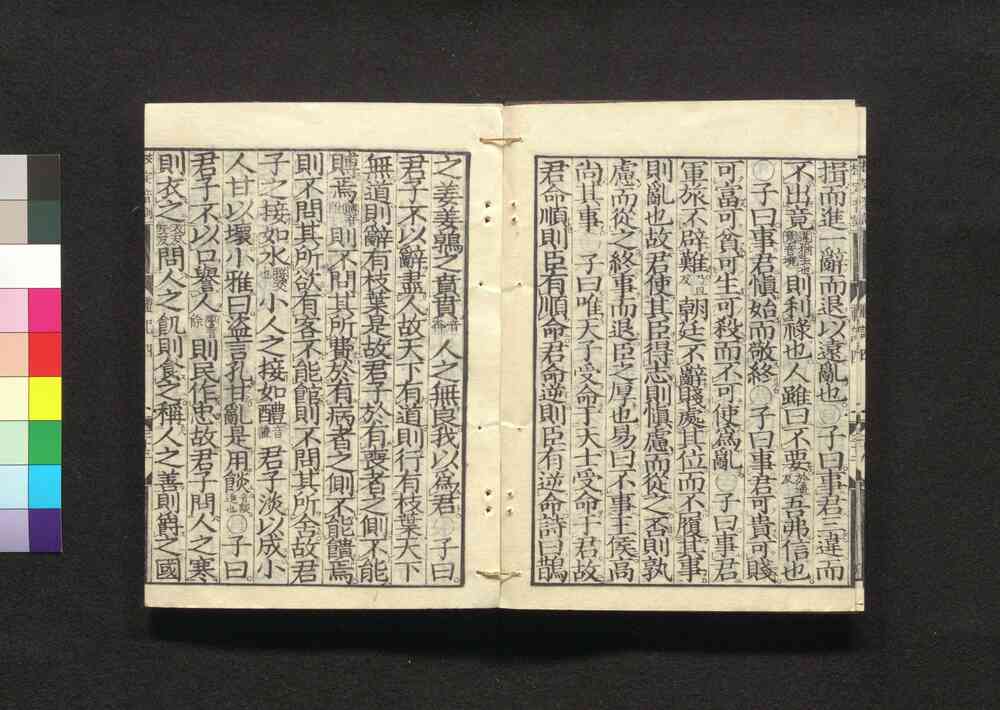 揖而進一辭而退以遠亂也子曰事君三違而
不出竟則利祿也人雖曰不要吾弗信也
子曰事君愼始而敬終子曰事君可貴可賤
可富可貧可生可殺而不可使爲亂子曰事君
軍旅不辟難朝廷不辭賤處其位而不履其事
則亂也故君使其臣得志則愼慮而從之否則孰
慮而從之終事而退臣之厚也易曰不事王侯高
尚其事子曰唯天子受命于天士受命于君故
君命順則臣有順命君命逆則臣有逆命詩曰鵲
之姜姜鶉之賁賁人之無良我以爲君子曰
君子不以辭盡人故天下有道則行有枝葉天下
無道則辭有枝葉是故君子於有喪者之側不能
賻焉則不問其所費於有病者之側不能饋焉
則不問其所欲有客不能館則不問其所舍故君
子之接如水小人之接如醴君子淡以成小
人甘以壞小雅曰盜言孔甘亂是用餤子曰
君子不以口譽人則民作忠故君子問人之寒
則衣之問人之飢則食之稱人之善則爵之國